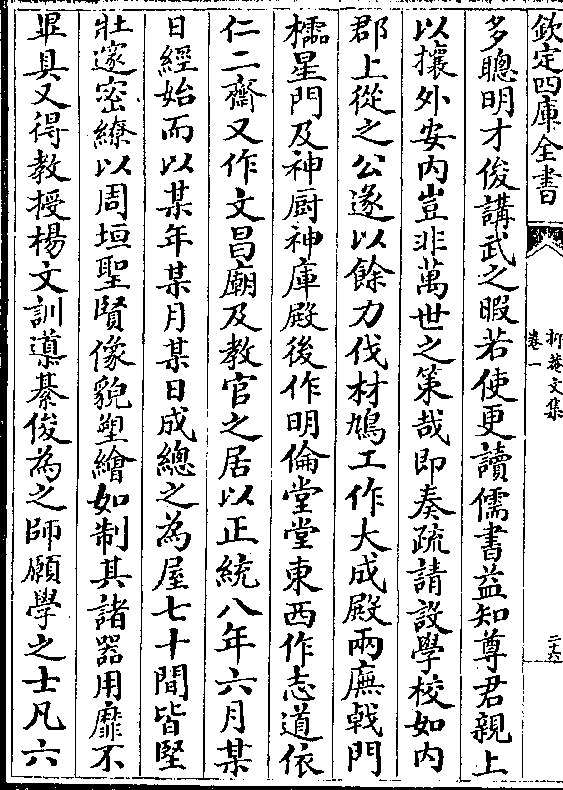 欽定四庫全書
抑菴文集
卷一
二十六
多聰明才俊講武之暇若使更讀儒書益知尊君親上
以攘外安内豈非萬世之策哉即奏疏請設學校如内
郡上從之公遂以餘力伐材鳩工作大成殿兩廡㦸門
櫺星門及神厨神庫殿後作明倫堂堂東西作志道依
仁二齋又作文昌廟及教官之居以正統八年六月某
日經始而以某年某月某日成總之為屋七十間皆堅
壯邃密繚以周垣聖賢像貌塑繪如制其諸器用靡不
畢具又得教授楊文訓導綦俊為之師願學之士凡六